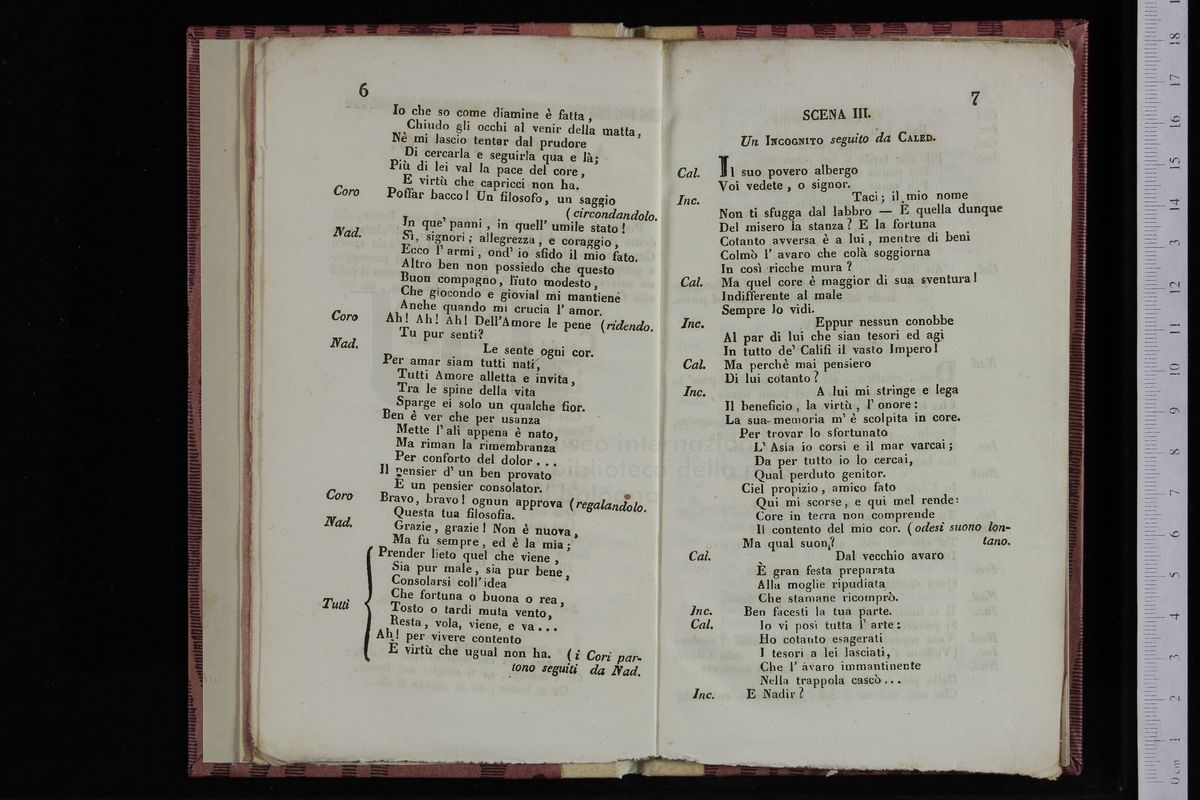 6
Io che so come diamine è fatta,
Chiudo gli occhi al venir della matta,
Nè mi lascio tentar dal prudore
Di cercarla e seguirla qua e là;
Più di lei val la pace del core,
E virtù che capricci non ha.
Coro Poffar bacco! Un filosofo, un saggio
(circondandolo.
In que' panni, in quell' umile stato!
Nad. Sì, signori; allegrezza, e coraggio,
Ecco l' armi, ond' io sfido il mio fato.
Altro ben non possiedo che questo
Buon compagno, liuto modesto,
Che giocondo e giovial mi mantiene
Anche quando mi crucia l' amor.
Coro Ah! Ah! Ah! Dell'Amore le pene (ridendo.
Tu pur senti?
Nad. Le sente ogni cor.
Per amar siam tutti nati,
Tutti Amore alletta e invita,
Tra le spine della vita
Sparge ei solo un qualche fior.
Ben è ver che per usanza
Mette l' ali appena è nato,
Ma riman la rimembranza
Per conforto del dolor...
Il pensier d' un ben provato
È un pensier consolator.
Coro Bravo, bravo! ognun approva (regalandolo.
Questa tua filosofia.
Nad. Grazie, grazie! Non è nuova,
Ma fu sempre, ed è la mia;
Prender lieto quel che viene,
Sia pur male, sia pur bene,
Consolarsi coll'idea
Che fortuna o buona o rea,
Tutti Tosto o tardi muta vento,
Resta, vola, viene, e va...
Ah! per vivere contento
È virtù che ugual non ha. (i Cori par-
tono seguiti da Nad.
7
SCENA III.
Un INCOGNITO seguito da CALED.
Cal. Il suo povero albergo
Voi vedete, o signor.
Inc. Taci; il mio nome
Non ti sfugga dal labbro — È quella dunque
Del misero la stanza? E la fortuna
Cotanto avversa è a lui, mentre di beni
Colmò l' avaro che colà soggiorna
In così ricche mura?
Cal. Ma quel core è maggior di sua sventura!
Indifferente al male
Sempre lo vidi.
Inc. Eppur nessun conobbe
Al par di lui che sian tesori ed agi
In tutto de' Califi il vasto Impero!
Cal. Ma perchè mai pensiero
Di lui cotanto?
Inc. A lui mi stringe e lega
Il beneficio, la virtù, l' onore:
La sua memoria m' è scolpita in core.
Per trovar lo sfortunato
L' Asia io corsi e il mar varcai;
Da per tutto io lo cercai,
Qual perduto genitor.
Ciel propizio, amico fato
Qui mi scorse, e qui mel rende:
Core in terra non comprende
Il contento del mio cor. (odesi suono lon-
Ma qual suon? tano.
Cal. Dal vecchio avaro
È gran festa preparata
Alla moglie ripudiata
Che stamane ricomprò.
Inc. Ben facesti la tua parte.
Cal. Io vi posi tutta l' arte:
Ho cotanto esagerati
I tesori a lei lasciati,
Che l' avaro immantinente
Nella trappola cascò...
Inc. E Nadir?